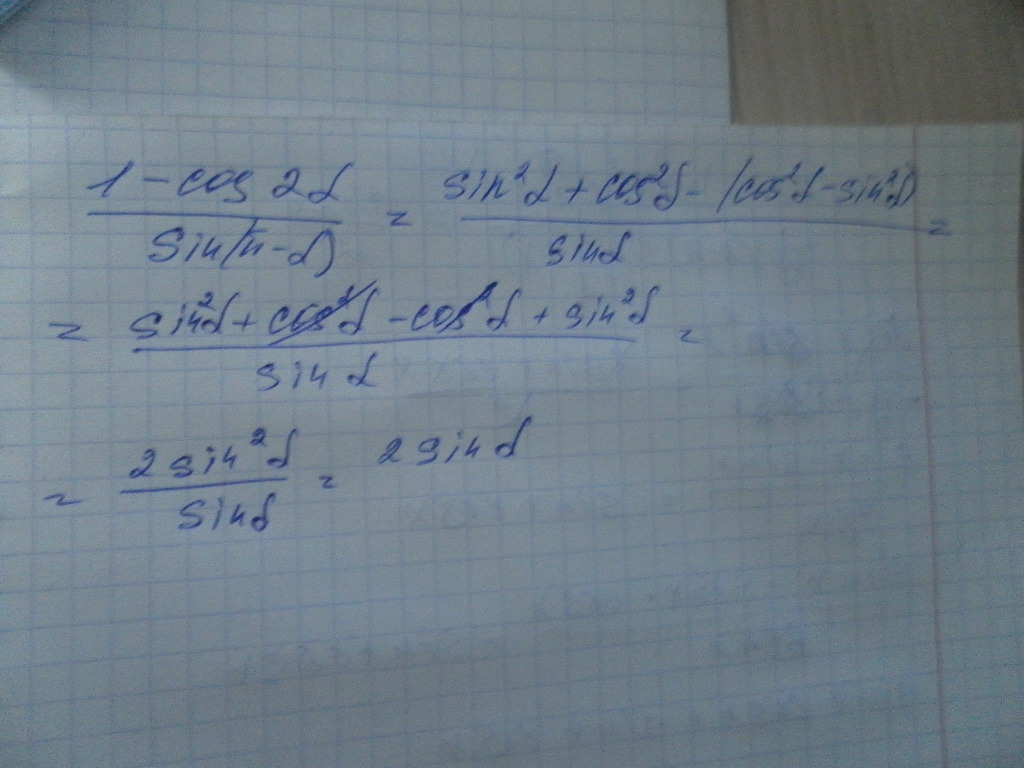 1 - cos 2α / sin(π - α) = sin²α + cos²α - (cos²α - sin²α) / sin α =
= sin²α + cos²α - cos²α + sin²α / sin α =
= 2 sin²α / sin α = 2 sin α